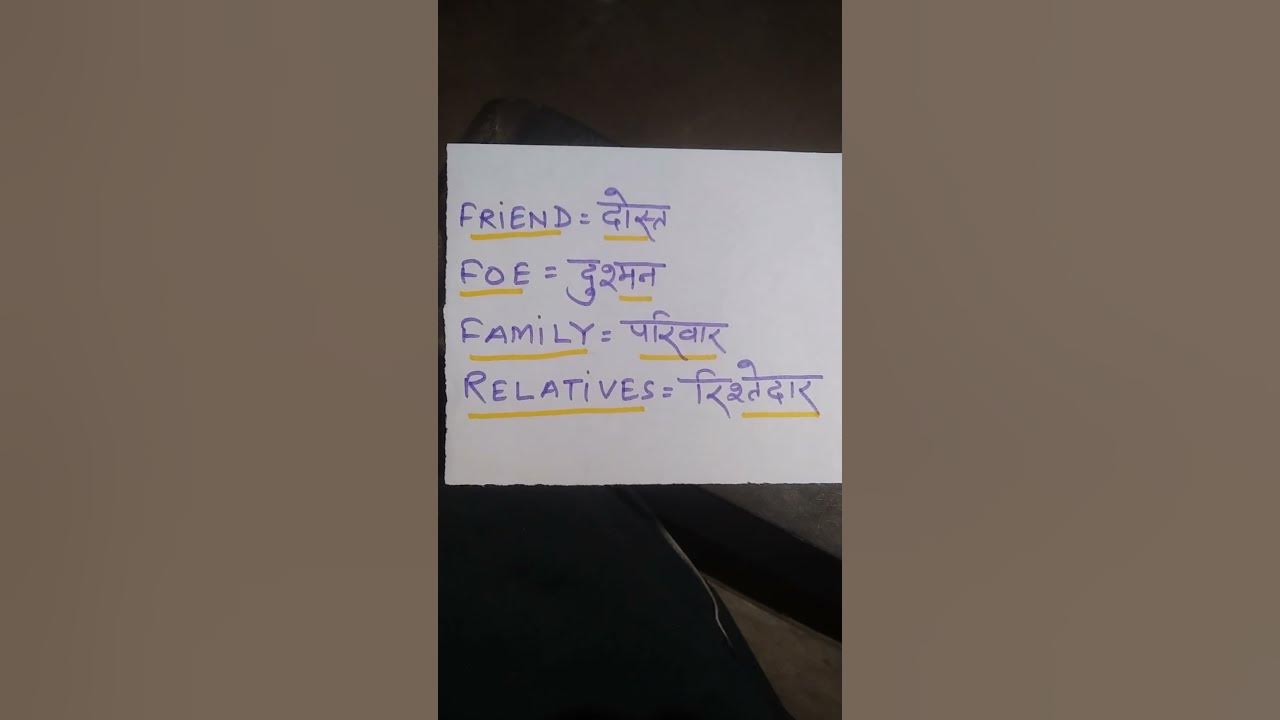 FRiEND = दोस्त
FOE = दुश्मन
FAMiLY = परिवार
RELATiVES = रिश्तेदार